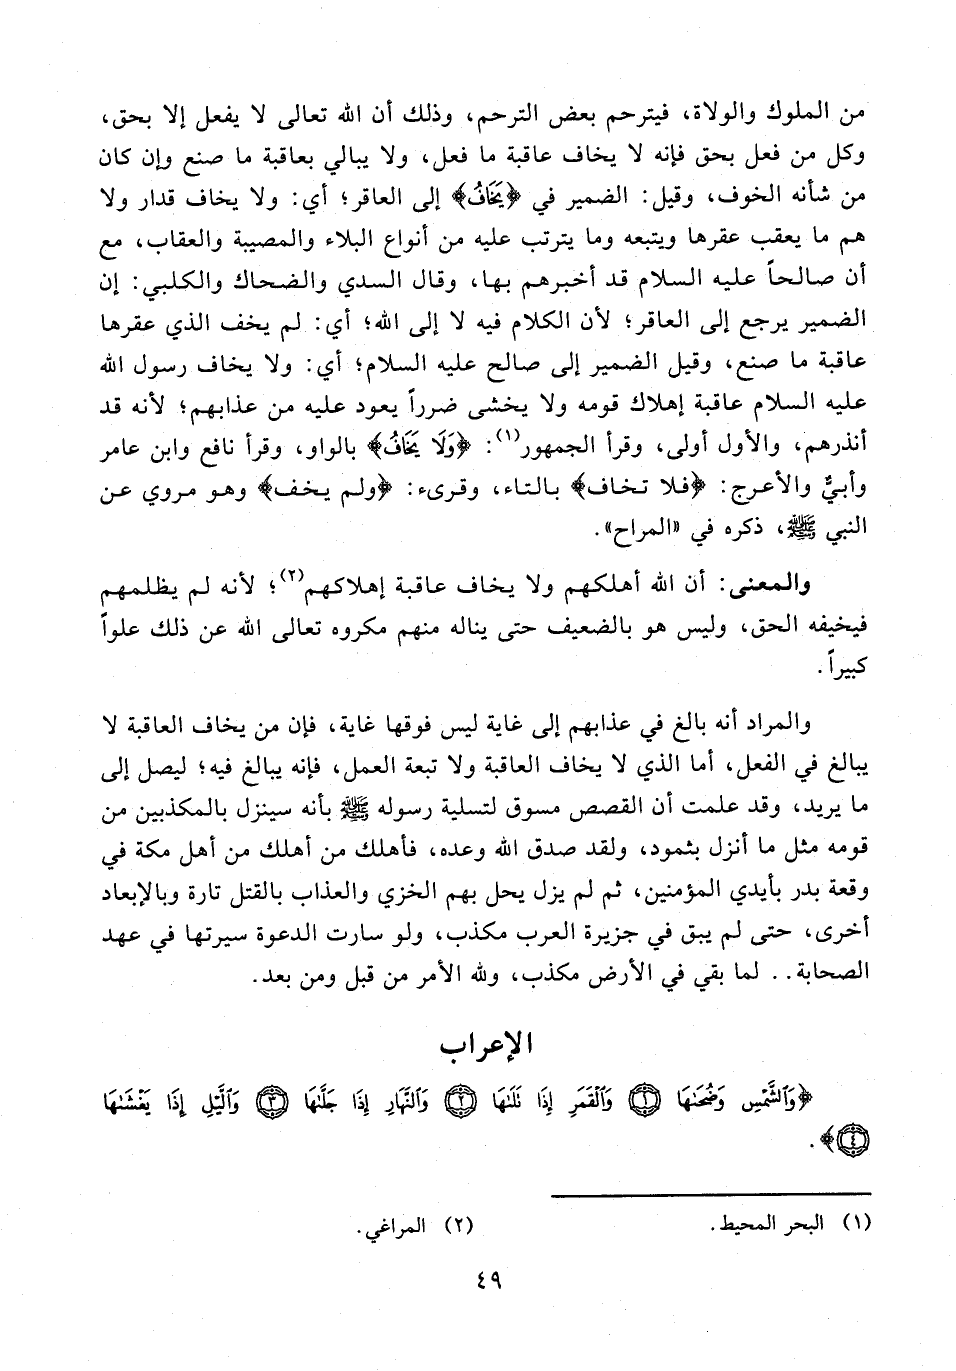 من الملوك والولاة، فيترحم بعض الترحم، وذلك أن الله تعالى لا يفعل إلا بحق،
وكل من فعل بحق فإنه لا يخاف عاقبة ما فعل، ولا يبالي بعاقبة ما صنع وإن كان
من شأنه الخوف، وقيل: الضمير في ﴿يَخَافُ﴾ إلى العاقر؛ أي: ولا يخاف قدار ولا
هم ما يعقب عقرها ويتبعه وما يترتب عليه من أنواع البلاء والمصيبة والعقاب، مع
أن صالحاً عليه السلام قد أخبرهم بها، وقال السدي والضحاك والكلبي: إن
الضمير يرجع إلى العاقر؛ لأن الكلام فيه لا إلى الله؛ أي: لم يخف الذي عقرها
عاقبة ما صنع، وقيل الضمير إلى صالح عليه السلام؛ أي: ولا يخاف رسول الله
عليه السلام عاقبة إهلاك قومه ولا يخشى ضرراً يعود عليه من عذابهم؛ لأنه قد
أنذرهم، والأول أولى، وقرأ الجمهور(١): ﴿وَلَا يَخَافُ﴾ بالواو، وقرأ نافع وابن عامر
وأبيٌّ والأعرج: ﴿فلا تخاف﴾ بالتاء، وقرىء: ﴿ولم يخف﴾ وهو مروي عن
النبي ﷺ، ذكره في «المراح».
والمعنى: أن الله أهلكهم ولا يخاف عاقبة إهلاكهم(٢)؛ لأنه لم يظلمهم
فيخيفه الحق، وليس هو بالضعيف حتى يناله منهم مكروه تعالى الله عن ذلك علواً
كبيراً.
والمراد أنه بالغ في عذابهم إلى غاية ليس فوقها غاية، فإن من يخاف العاقبة لا
يبالغ في الفعل، أما الذي لا يخاف العاقبة ولا تبعة العمل، فإنه يبالغ فيه؛ ليصل إلى
ما يريد، وقد علمت أن القصص مسوق لتسلية رسوله ﷺ بأنه سينزل بالمكذبين من
قومه مثل ما أنزل بثمود، ولقد صدق الله وعده، فأهلك من أهلك من أهل مكة في
وقعة بدر بأيدي المؤمنين، ثم لم يزل يحل بهم الخزي والعذاب بالقتل تارة وبالإبعاد
أخرى، حتى لم يبق في جزيرة العرب مكذب، ولو سارت الدعوة سيرتها في عهد
الصحابة.. لما بقي في الأرض مكذب، ولله الأمر من قبل ومن بعد.
الإعراب
﴿وَٱلشَّمْسِ وَضُحَىٰهَا ١ وَٱلْقَمَرِ إِذَا تَلَىٰهَا ٢ وَٱلنَّهَارِ إِذَا جَلَّىٰهَا ٣ وَٱلَّيْلِ إِذَا يَغْشَىٰهَا
٤﴾.
(١) البحر المحيط. (٢) المراغي.
٤٩